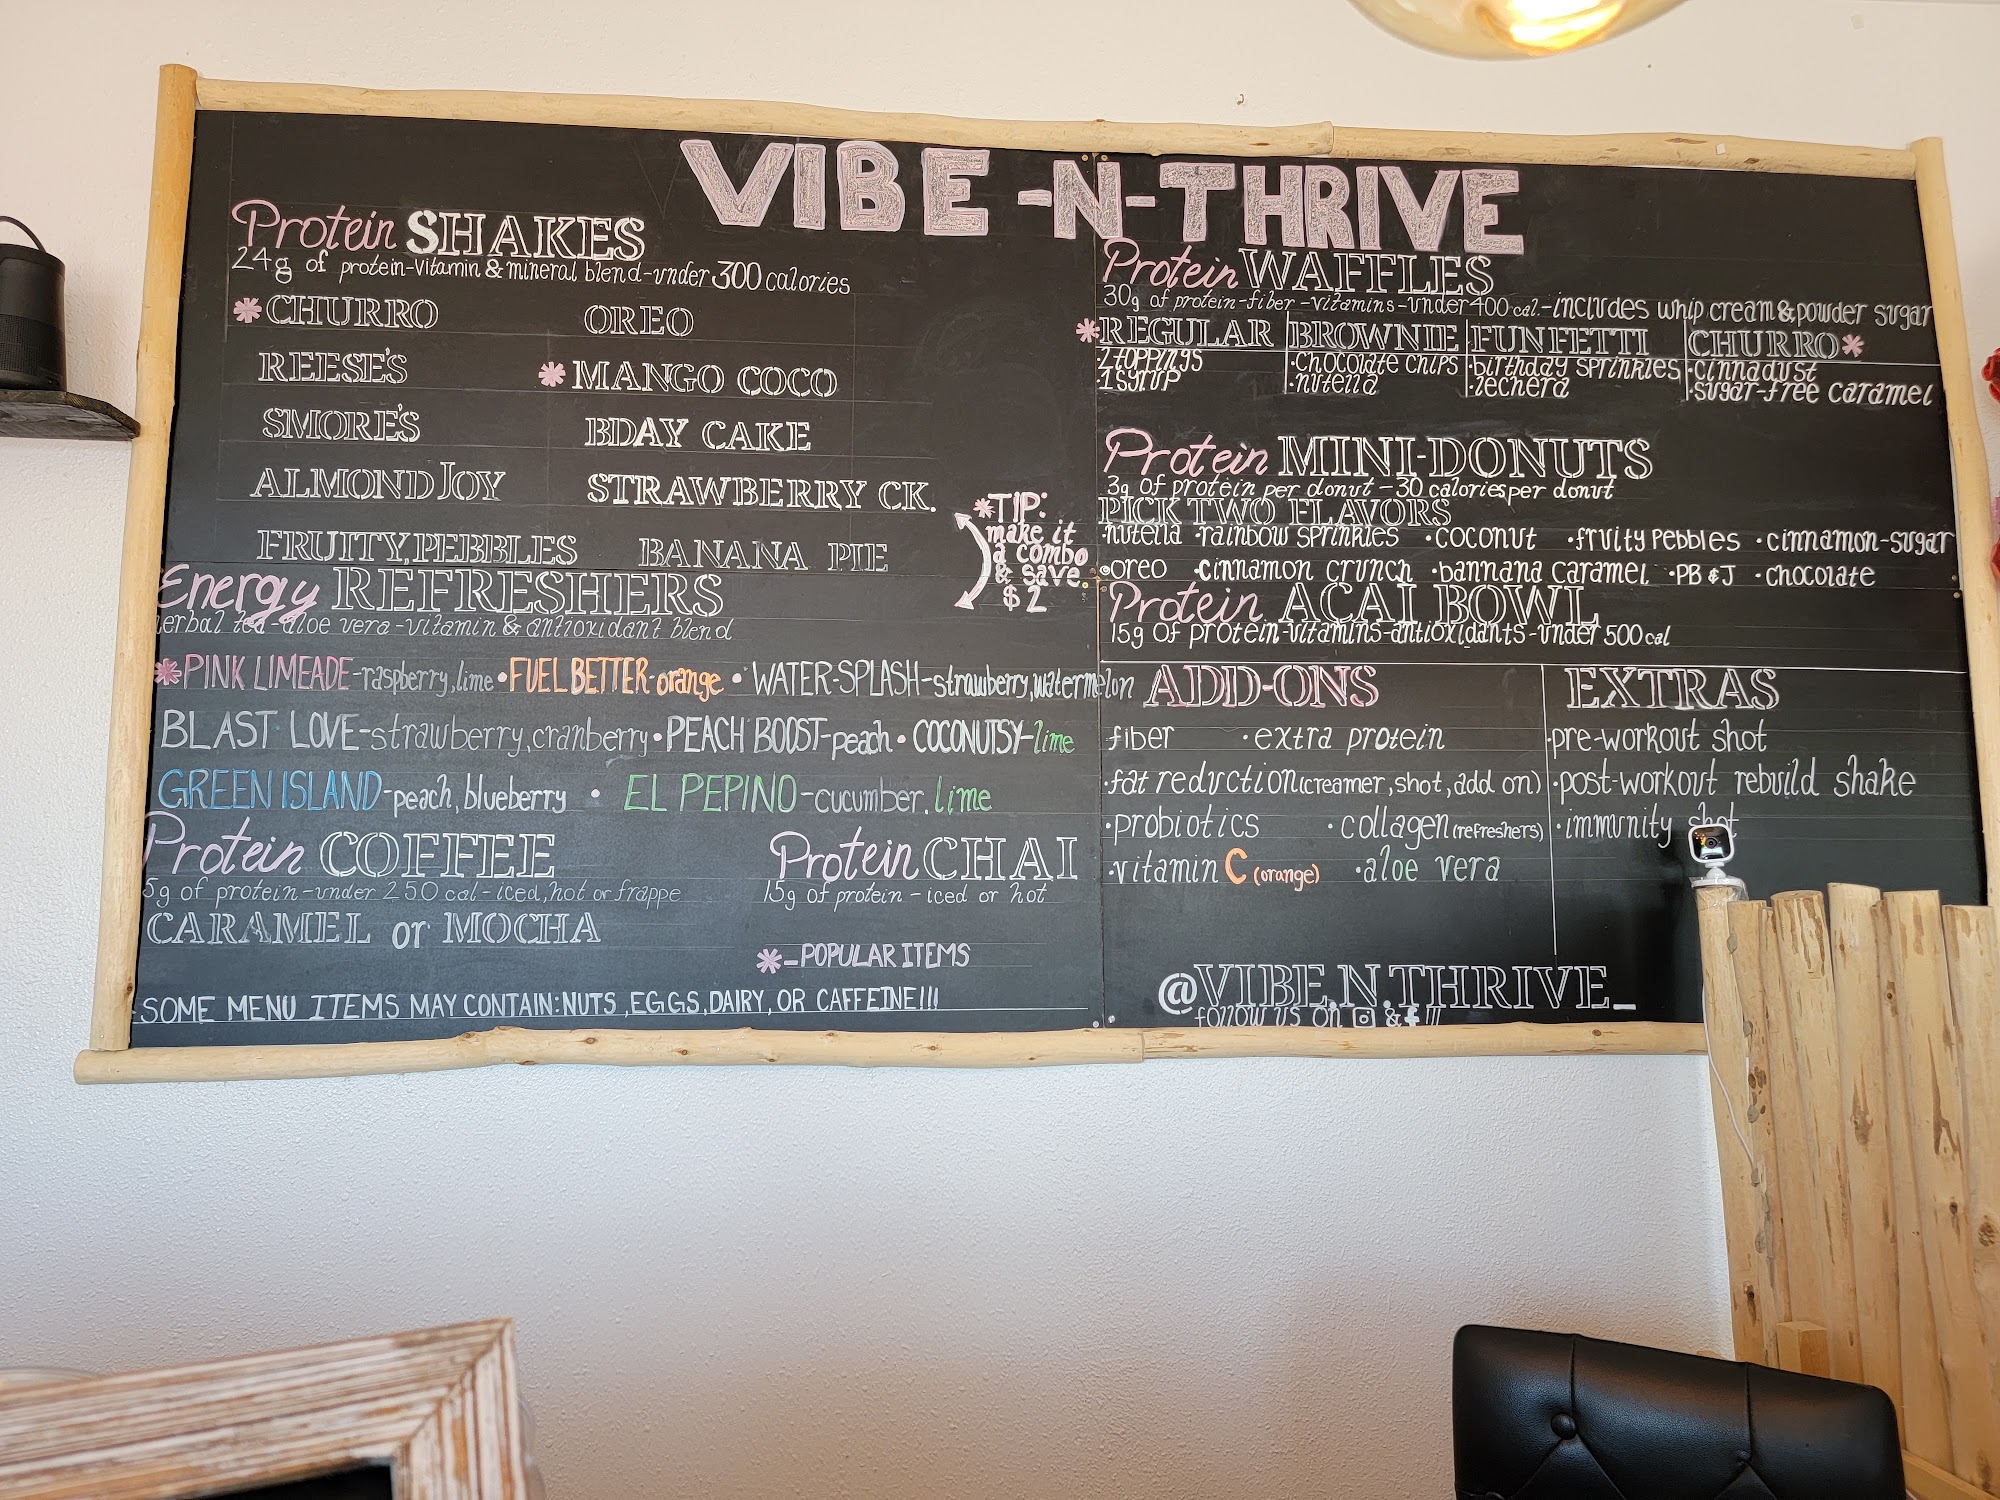 VIBE-N-THRIVE
Protein SHAKES
24g of protein-vitamin & mineral blend-under 300 calories
*CHURRO OREO
REESE'S *MANGO COCO
SMORE'S BDAY CAKE
ALMOND JOY STRAWBERRY CK.
FRUITY, PEBBLES BANANA PIE
*TIP:
make it
a combo
& save
$2
Energy REFRESHERS
herbal tea-aloe vera-vitamin & antioxidant blend
*PINK LIMEADE-raspberry, lime • FUEL BETTER-orange • WATER-SPLASH-strawberry, watermelon
BLAST LOVE-strawberry, cranberry • PEACH BOOST-peach • COCONUTSY-lime
GREEN ISLAND-peach, blueberry • EL PEPINO-cucumber, lime
Protein COFFEE
5g of protein-under 250 cal-iced, hot or frappe
CARAMEL or MOCHA
Protein CHAI
15g of protein-iced or hot
*-POPULAR ITEMS
SOME MENU ITEMS MAY CONTAIN: NUTS, EGGS, DAIRY, OR CAFFEINE!!!
Protein WAFFLES
30g of protein-fiber-vitamins-under 400 cal.-includes whip cream & powder sugar
*REGULAR BROWNIE FUNFETTI CHURRO*
·2 toppings ·chocolate chips ·birthday sprinkles ·cinnadust
·1 syrup ·nutella ·lechera ·sugar-free caramel
Protein MINI-DONUTS
3g of protein per donut-30 calories per donut
PICK TWO FLAVORS
·nutella ·rainbow sprinkles ·coconut ·fruity pebbles ·cinnamon-sugar
·oreo ·cinnamon crunch ·bannana caramel ·PB & J ·chocolate
Protein ACAI BOWL
15g of protein-vitamins-antioxidants-under 500 cal
ADD-ONS
·fiber ·extra protein
·fat reduction (creamer, shot, add on)
·probiotics ·collagen (refreshers)
·vitamin C (orange) ·aloe vera
EXTRAS
·pre-workout shot
·post-workout rebuild shake
·immunity shot
@VIBE.N.THRIVE_
follow us on & f !!!